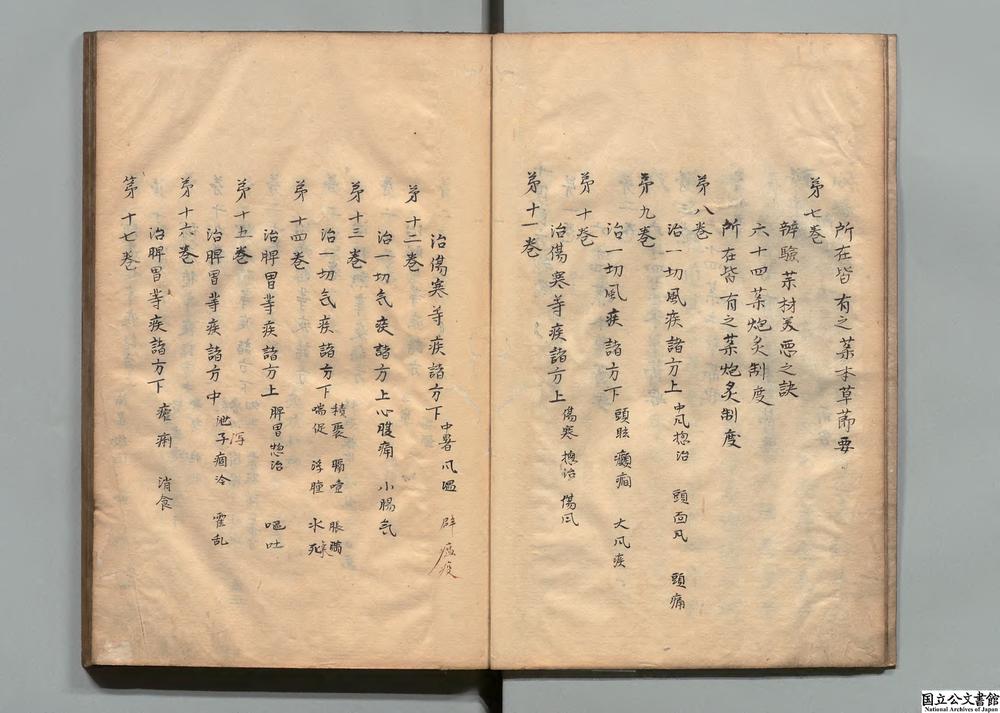 所在皆有之薬本草節要
第七巻
辨験薬材美悪之訣
六十四薬炮炙制度
所在皆有之薬炮炙制度
第八巻
治一切風疾諸方上 中风揔治 頭面风 頭痛
第九巻
治一切風疾諸方下 頭眩 癲癇 大风疾
第十巻
治傷寒等疾諸方上 傷寒揔治 傷风
第十一巻
治傷寒等疾諸方下 中暑 风温 辟瘟疫
第十二巻
治一切気疾諸方上 心腹痛 小腸気
第十三巻
治一切気疾諸方下 積聚 膈噎 脹満 喘促 浮腫 水
第十四巻
治脾胃等疾諸方上 脾胃惣治 嘔吐
第十五巻
治脾胃等疾諸方中 泄瀉 痼冷 霍乱
第十六巻
治脾胃等疾諸方下 瘧痢 消食
第十七巻
国立公文書館
National Archives of Japan